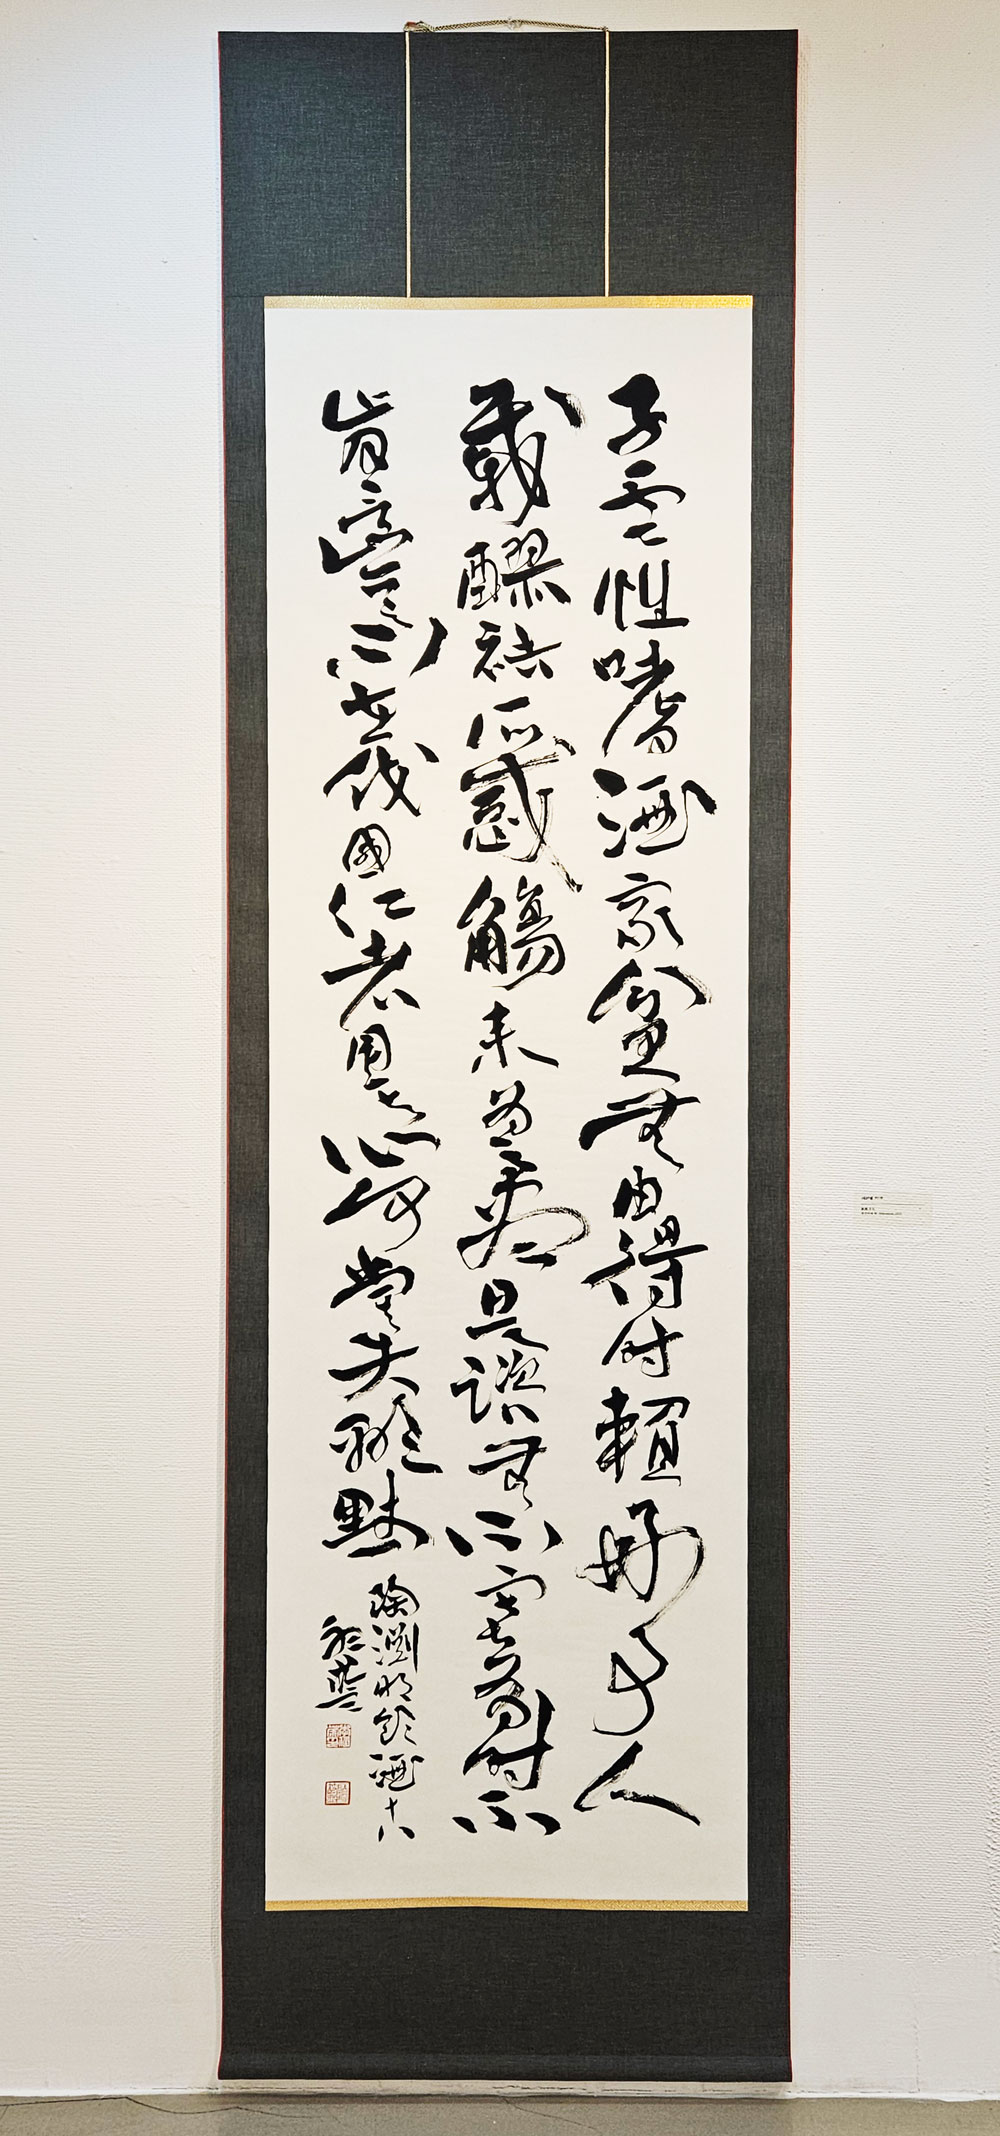 子雲性嗜酒家貧無由得時賴好事人
載醪祛所惑觴來為之盡是諮無不塞有時不
肯言豈不在伐國仁者用其心何嘗失顯默
陶淵明飲酒十八